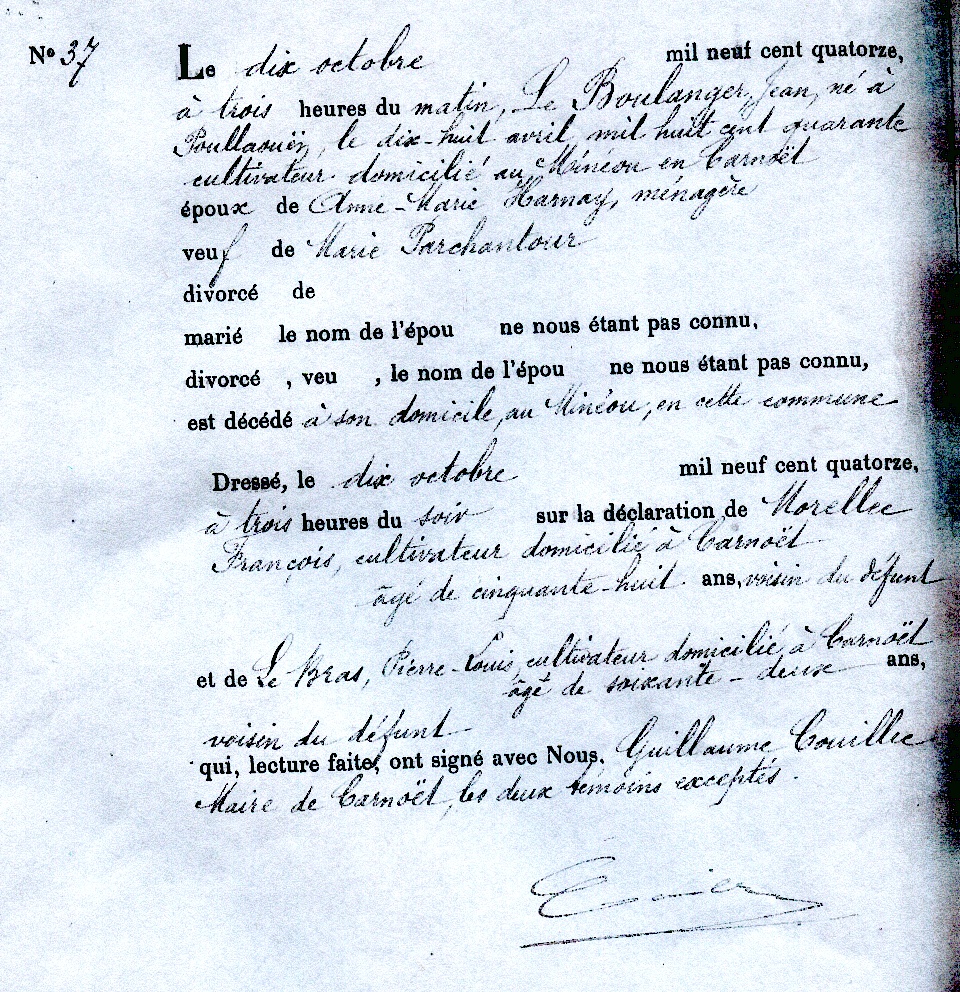 N° 37
Le dix octobre mil neuf cent quatorze,
à trois heures du matin, Le Boulanger, Jean, né à
Poullaouën, le dix-huit avril, mil huit cent quarante
cultivateur domicilié au Minéou en Carnoët
époux de Anne-Marie Harnay, ménagère
veuf de Marie Parchantour
divorcé de
marié le nom de l'épou ne nous étant pas connu,
divorcé , veu , le nom de l'épou ne nous étant pas connu,
est décédé à son domicile, au Minéou, en cette commune
Dressé, le dix octobre mil neuf cent quatorze,
à trois heures du soir sur la déclaration de Morellec
François, cultivateur domicilié à Carnoët
âgé de cinquante-huit ans, voisin du défunt
et de Le Bras, Pierre-Louis, cultivateur domicilié à Carnoët
âgé de soixante-deux ans,
voisin du défunt
qui, lecture faite, ont signé avec Nous, Guillaume Couillec
Maire de Carnoët, les deux témoins exceptés.